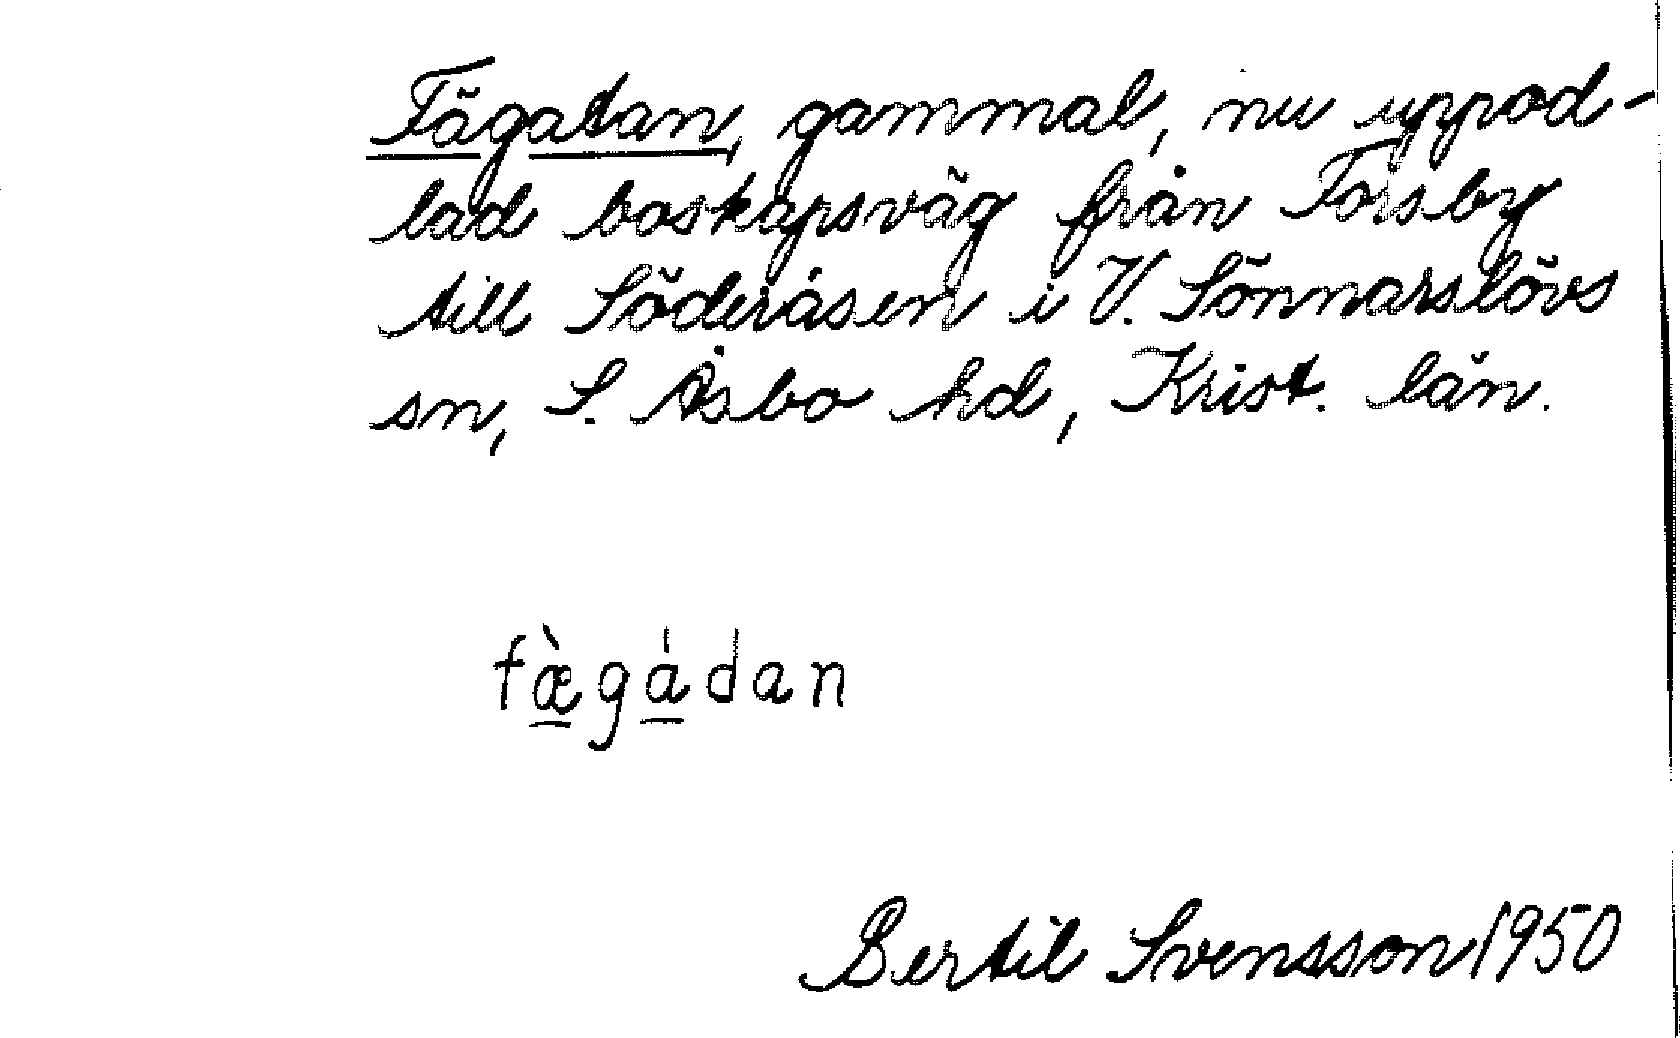 Fägatan, gammal, nu uppod-
lad boskapsväg från Forsby
till Söderåsen i V. Sönnarslövs
sn, S. Åsbo hd, Krist. län.
fæ̀gádan
Bertil Svensson 1950